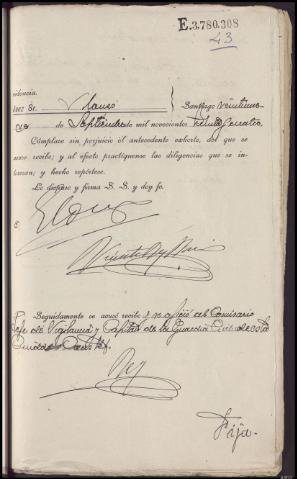 E.3.780.308
43
videncia.
Juez Sr. Santiago veintinue-
ve de Septiembre de mil novecientos treinta y cuatro.
Cúmplase sin perjuicio el antecedente exhorto, del que se
acuse recibo; y al efecto practíquense las diligencias que se in-
teresan; y hecho repórtese.
Lo dispuso y firma S. S. y doy fe.
Seguidamente se acusó recibo y se ofició al Comisario
Jefe de Vigilancia y Capitán de la Guardia Civil de esta
Ciudad. Doy fe.
Rey